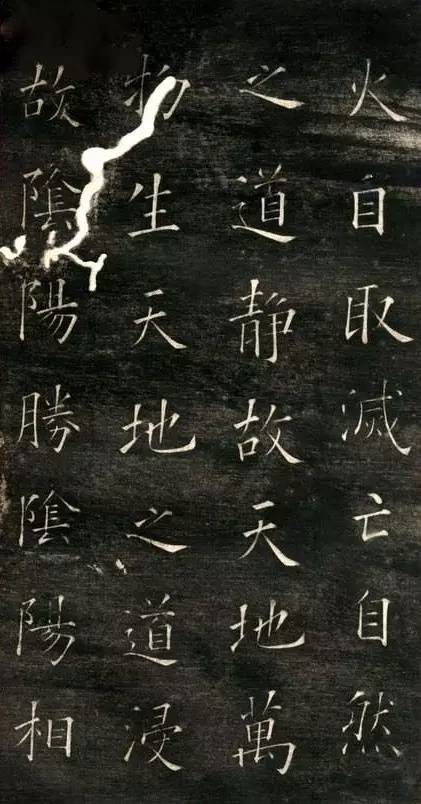 火自取滅亡自然
之道靜故天地萬
物生天地之道浸
故陰陽勝陰陽相